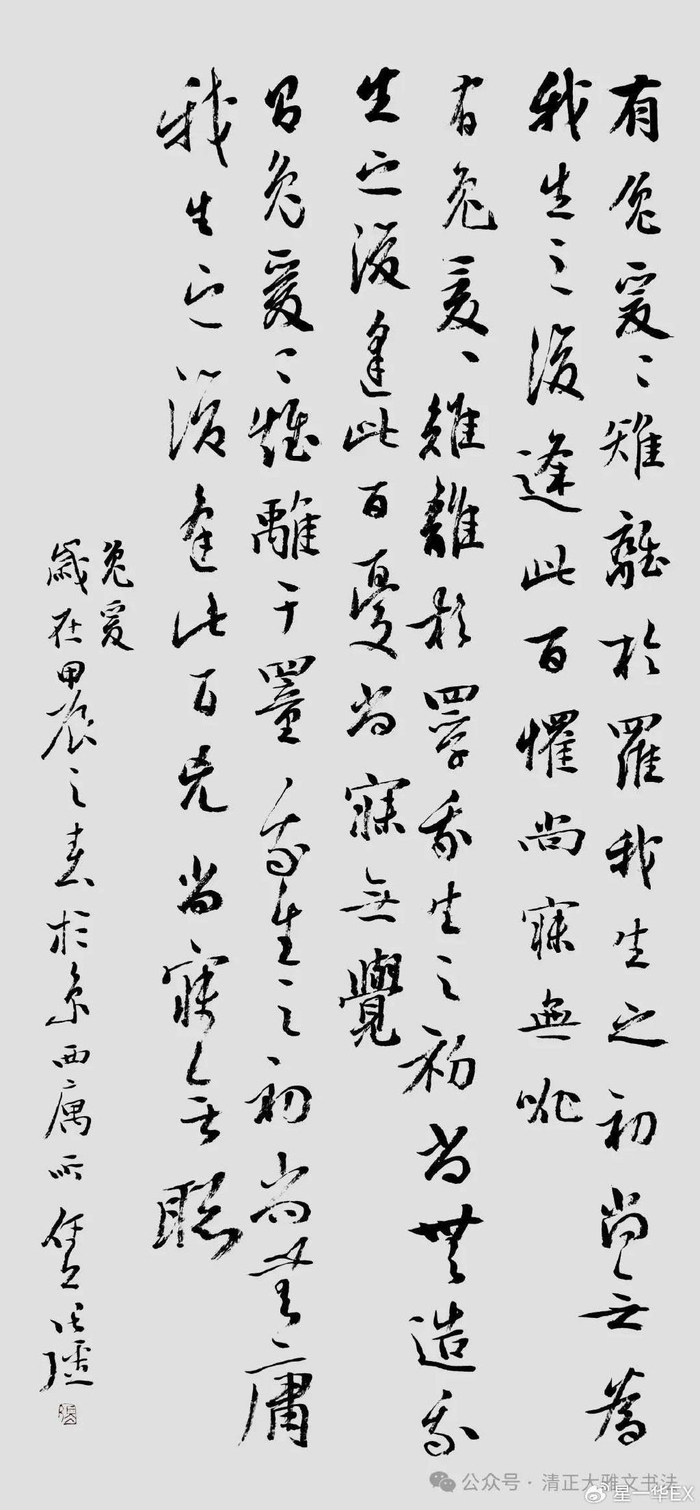 有兔爰〻雉離於羅我生之初尚无為
我生之後逢此百罹尚寐無吪
有兔爰〻雉離於罦我生之初尚無造我
生之後逢此百憂尚寐無覺
有兔爰〻雉離于罿我生之初尚無庸
我生之後逢此百兇尚寐无聰
兔爰
歲在甲辰之春於京西寓所
公众号·清正大雅文书法
@星一华EX